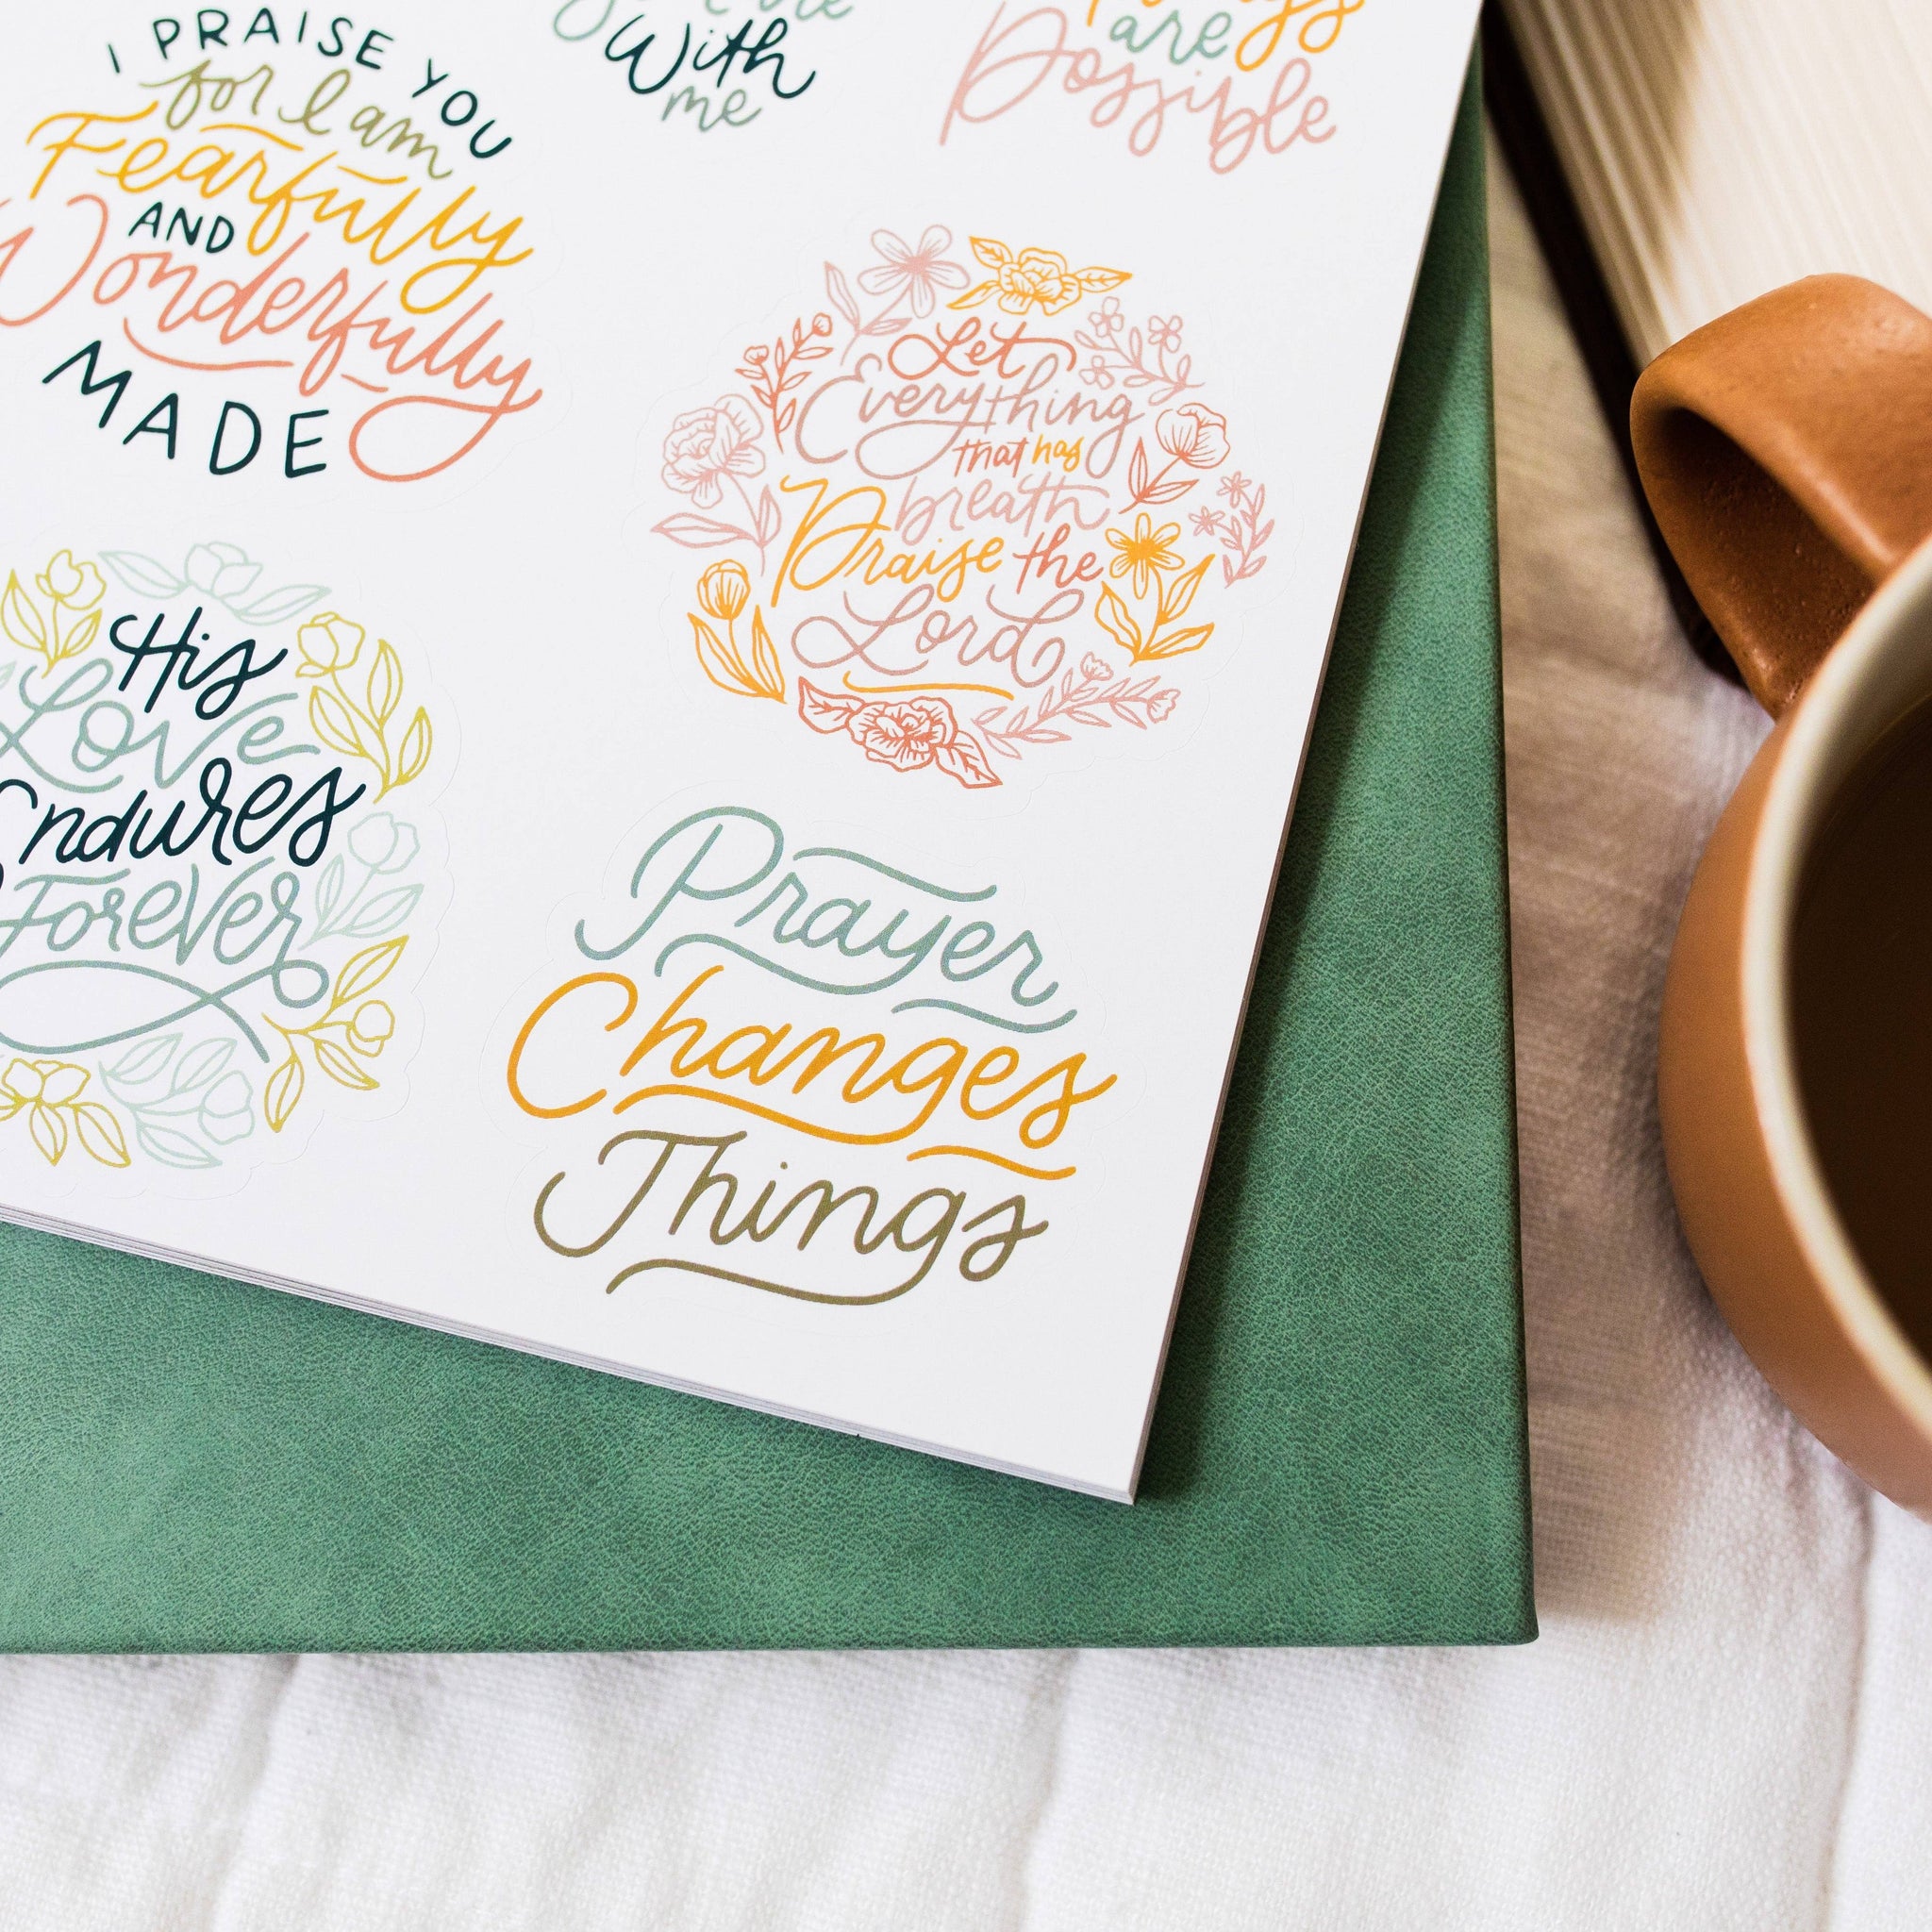 With
me
are
Possible
I PRAISE YOU
for I am
Fearfully
AND
Wonderfully
MADE
Let
Everything
that has
breath
Praise the
Lord
His
Love
Endures
Forever
Prayer
Changes
Things